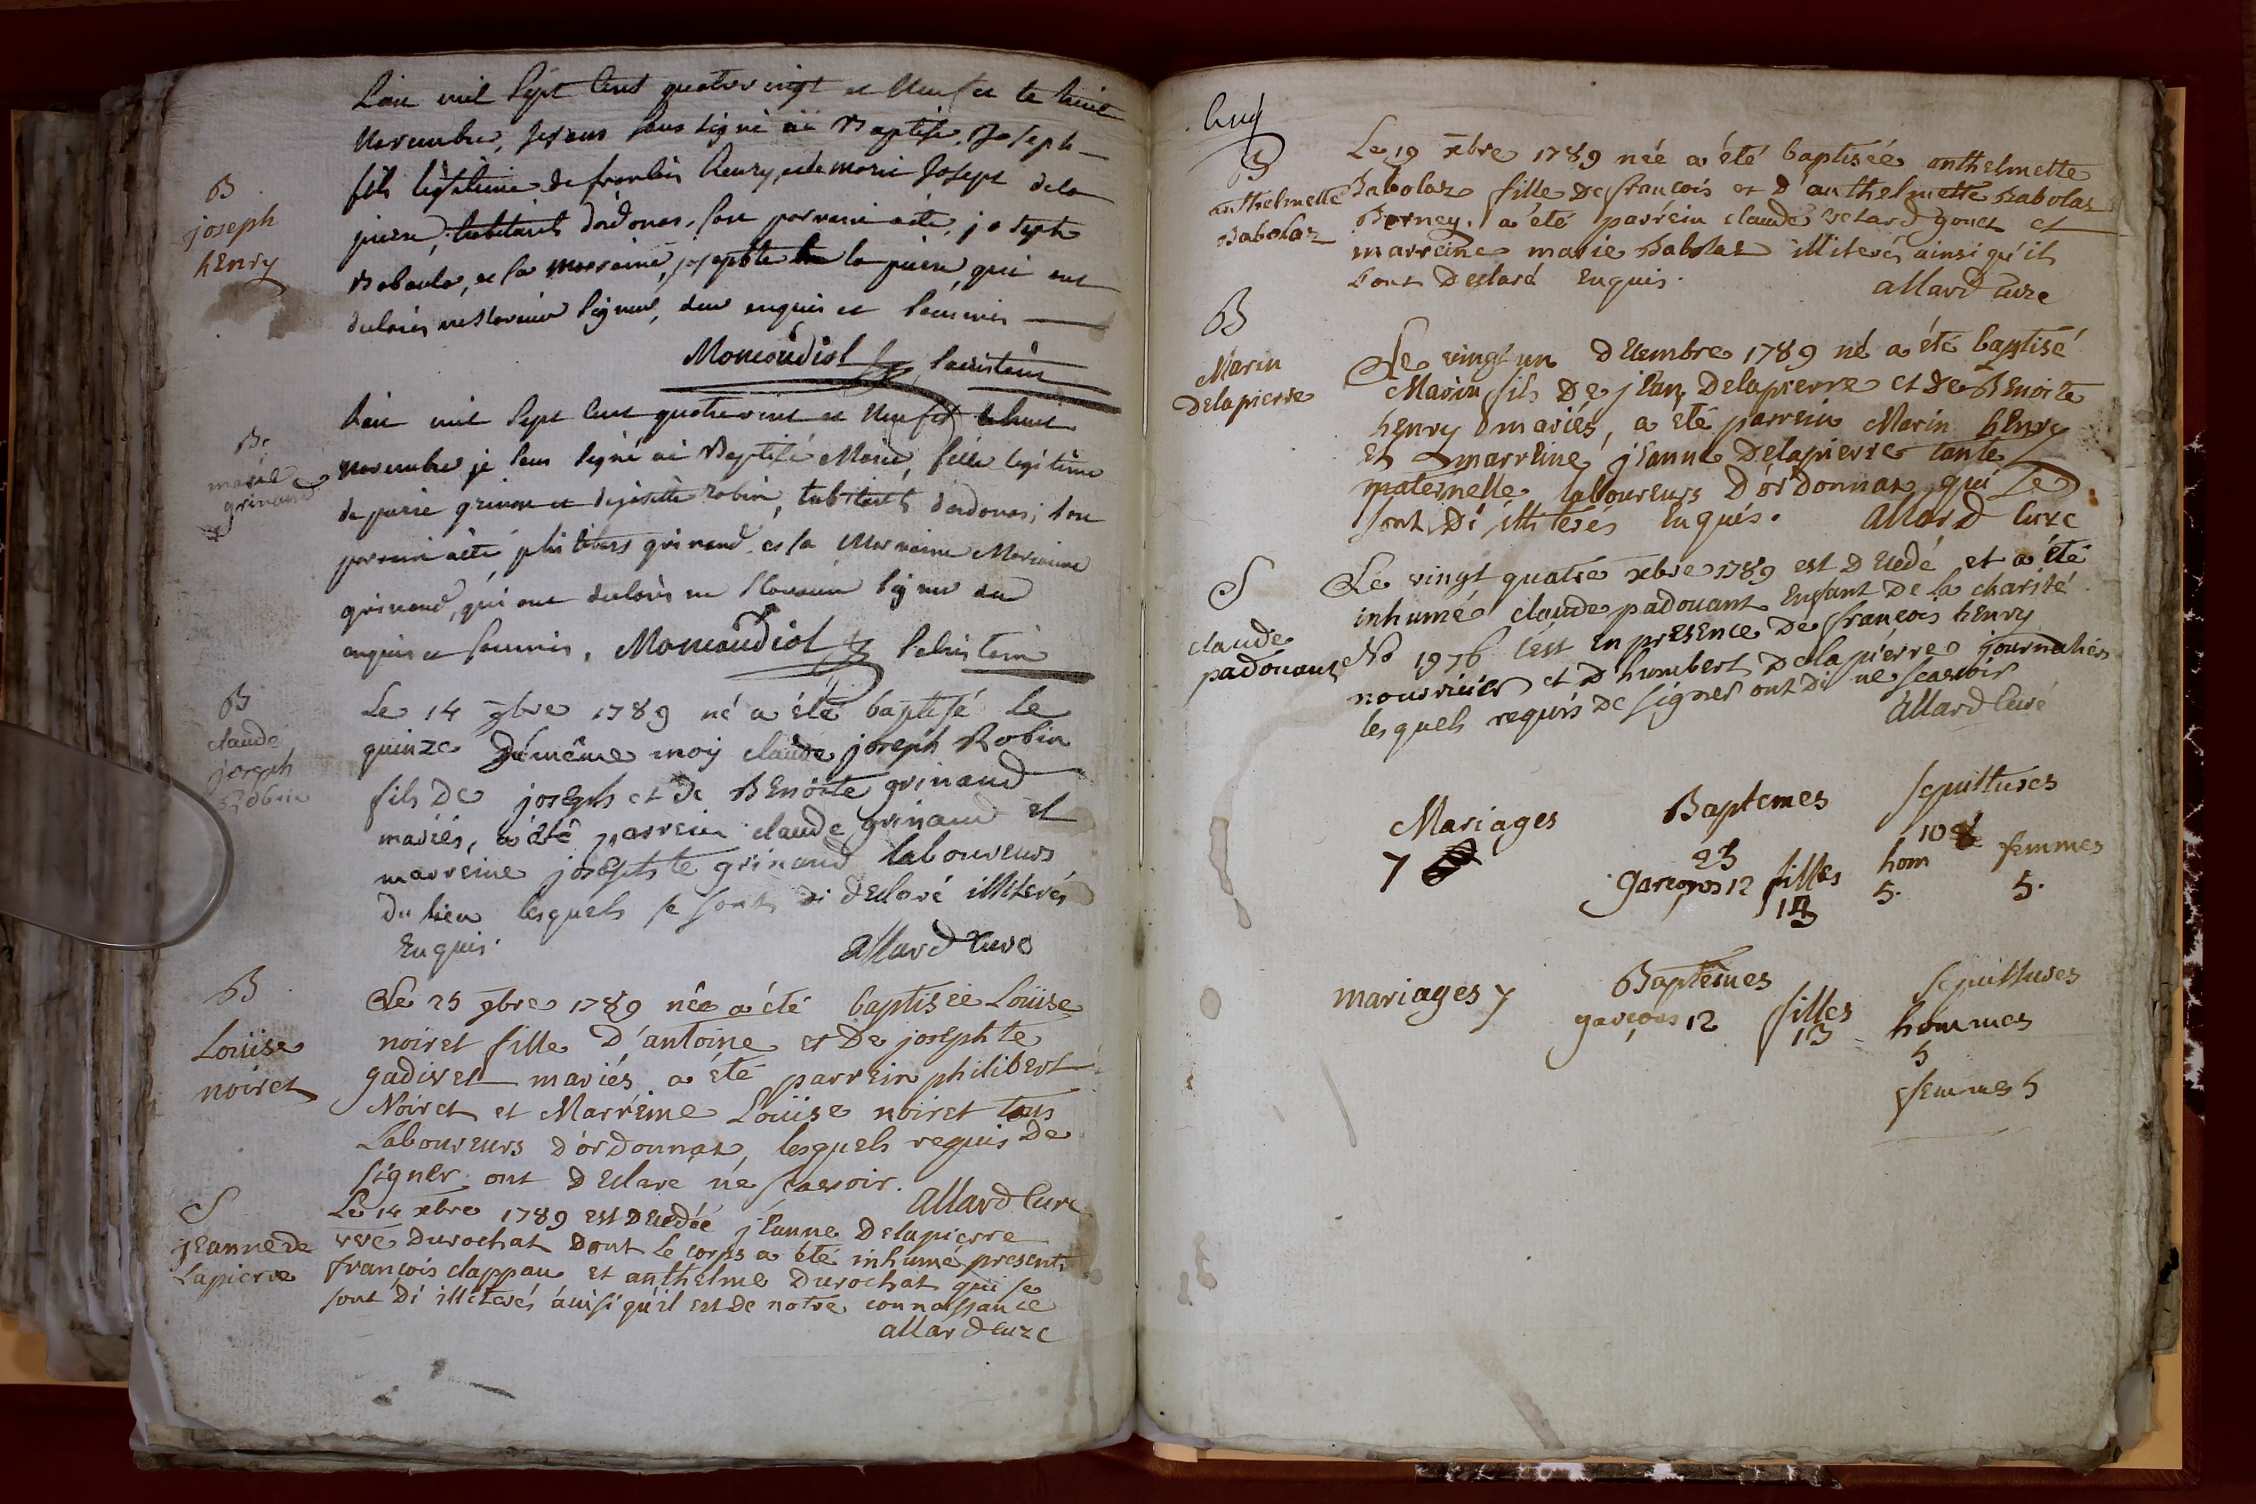 Lan mil Sept Cent quatre vingt et Neuf et le huit
Novembre, je sous signé ai Baptisé, Joseph
fils légitime de franćois henry, et de marie Joseph dela
pierre, habitants dordonas, son parrain a eté, joseph
Baboula, et la marraine, josephte la pierre, qui ont
declarés ne scavoir signer, de ce enquis et sommés
Moncoudiol sacristain
B
joseph
henry
Lan mil Sept Cent quatre vint et Neuf et le huit
novembre je sous signé ai Baptisé Marie, fille legitime
de pierre grinan et de josette robin, habitants dordonas, son
parrain a eté philibers grinand, et sa Marraine Marianne
grinand, qui ont declarés ne scavoir signer de ce
enquis et sommés, Moncoudiol sacristain
B
marie
grinand
Le 14 9bre 1789 né a été baptisé le
quinze du même moy claude joseph Robin
fils De joseph et de BEnoite grinand
mariés, a été parrein claude grinand et
marreine josephte grinand laboureurs
Du lieu lesquels se sont di declaré illiterés
Enquis. allard Curé
B
claude
joseph
Robin
Le 25 9bre 1789 née a été baptisée Loüise
noiret fille D'antoine et De josephte
gadiret mariés a été parrein philibert
Noiret et Marreine Loüise noiret tous
Laboureurs D'ordonnaz, lesquels requis De
signer ont Declaré né scavoir. allard Curé
B
Loüise
noiret
Le 14 xbre 1789 est Decedée jeanne Delapierre
veve Durochat Dont Le corps a été inhumé presents
françois clappau et anthelme Durochat qui se
sont Di illiterés ainsi qu'il est de notre connoissance
allard Curé
S
jeanne de
Lapierre
Le 19 xbre 1789 née a été baptisée anthelmette
Babolaz fille De françois et D'anthelmette Babolaz
Borney, a été parrein claude gonet et
marreine marie Babolaz illiterés ainsi qu'ils
l'ont Declaré Enquis. allard Curé
B
anthelmette
Babolaz
Le vingt un Decembre 1789 né a été baptisé
Marin fils De jean Delapierre et De BEnoite
henry mariés, a été parrein Marin henry
et marreine jeanne Delapierre tante
maternelle laboureurs D'ordonnaz qui se
sont Di illiterés Enquis. allard Curé
B
Marin
Delapierre
Le vingt quatre xbre 1789 est Decedé et a été
inhumé claude padouant Enfant De la charité
No 1976 c'est en presence De françois henry
nourricier et D'humbert Delapierre journalier
lesquels requis De signer ont di ne scavoir
allard Curé
S
claude
padouant
Mariages Baptemes Sepultures
7 25 10
garçons 12 filles 13 hom 5. femmes 5.
mariages 7 Baptêmes Sepultures
garçons 12 filles 13 hommes
5
femmes 5